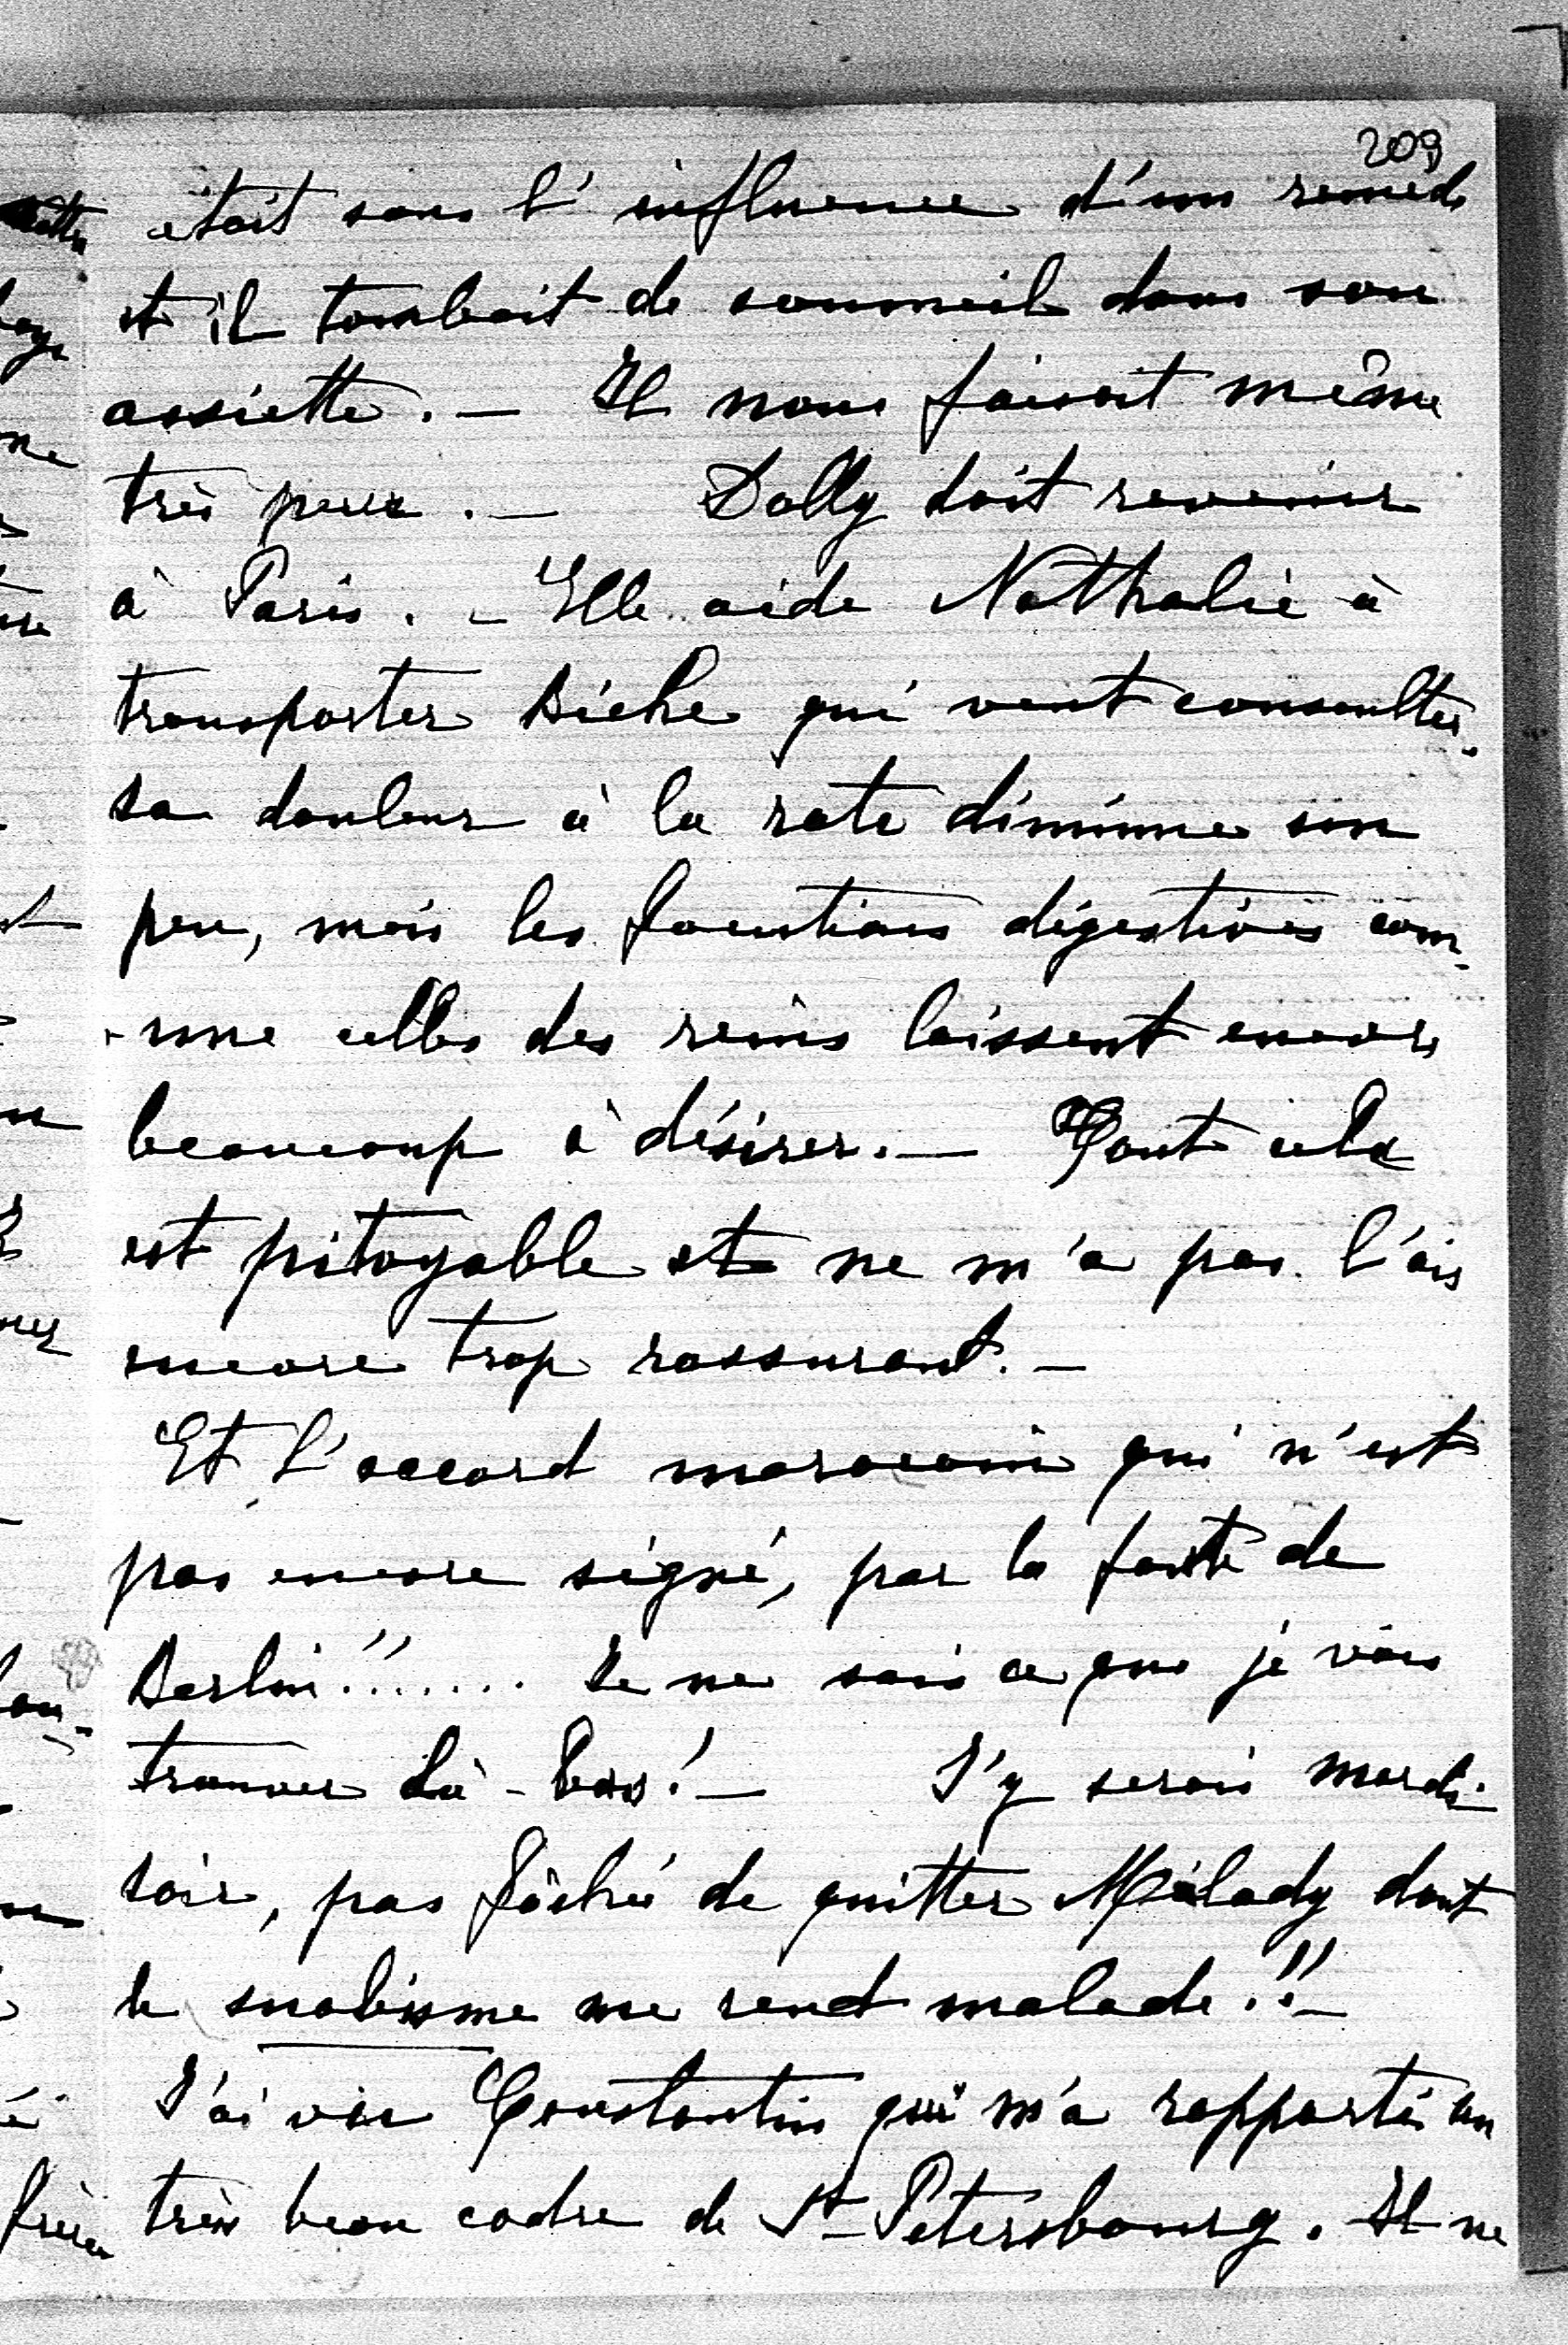 209
était sous l'influence d'un remède
et il tombait de sommeil dans son
assiette. — Il nous faisait même
très peur. — Dolly doit revenir
à Paris. — Elle aide Nathalie à
transporter Biche qui veut consulter.
Sa douleur à la rate diminue un
peu, mais les fonctions digestives com-
-me celles des reins laissent encore
beaucoup à désirer. — Tout cela
est pitoyable et ne m'a pas l'air
encore trop rassurant. —
Et l'accord marocain qui n'est
pas encore signé, par la faute de
Berlin!!...... Je ne sais ce que je vais
trouver là-bas! — J'y serai mardi
soir, pas fâché de quitter Milady dont
le snobisme me rend malade!! —
J'ai vu Constantin qui m'a rapporté un
très beau cadre de St-Pétersbourg. Il ne